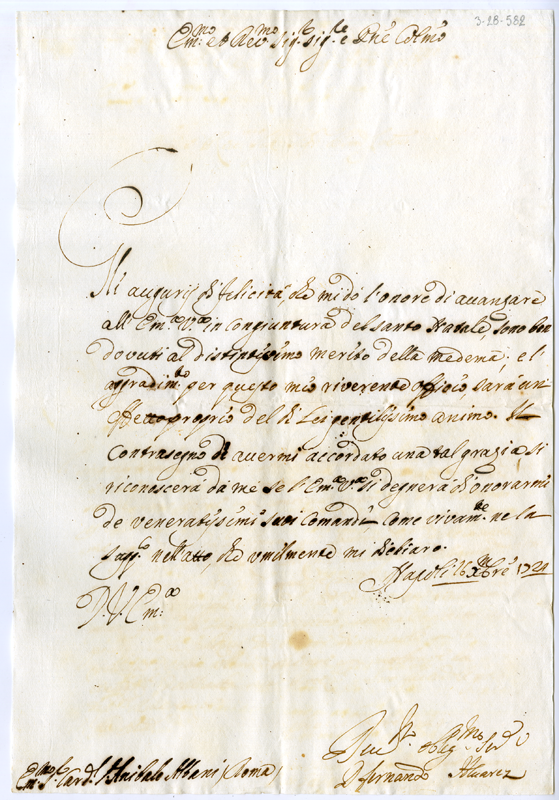 3-28-582
Em.mo et Rev.mo Sig.r Sig.r e Pñe Colmo
Gli augurij di felicità che mi do l'onore di auanzare
all'Em.a V.a in congiuntura del santo Natale, sono ben
dovuti al distintissimo merito della medema; e l'
aggradim.to per questo mio riverente offizio sarà un
effetto proprio del di Lei gentilissimo animo. Il
contrasegno di avermi accordato una tal grazia, si
riconoscerà da me se l'Em.a V.a si degnerà d'onorarmi
de veneratissimi suoi comandi, come vivam.te ne la
supp.co nell'atto che umilmente mi dichiaro.
Napoli 16 Xmbre 1721
D. V. Em.a
Oblig.mo Ser.
D. Fernando Alvarez
Em.mo S. Card.l Anibale Albani (Roma)